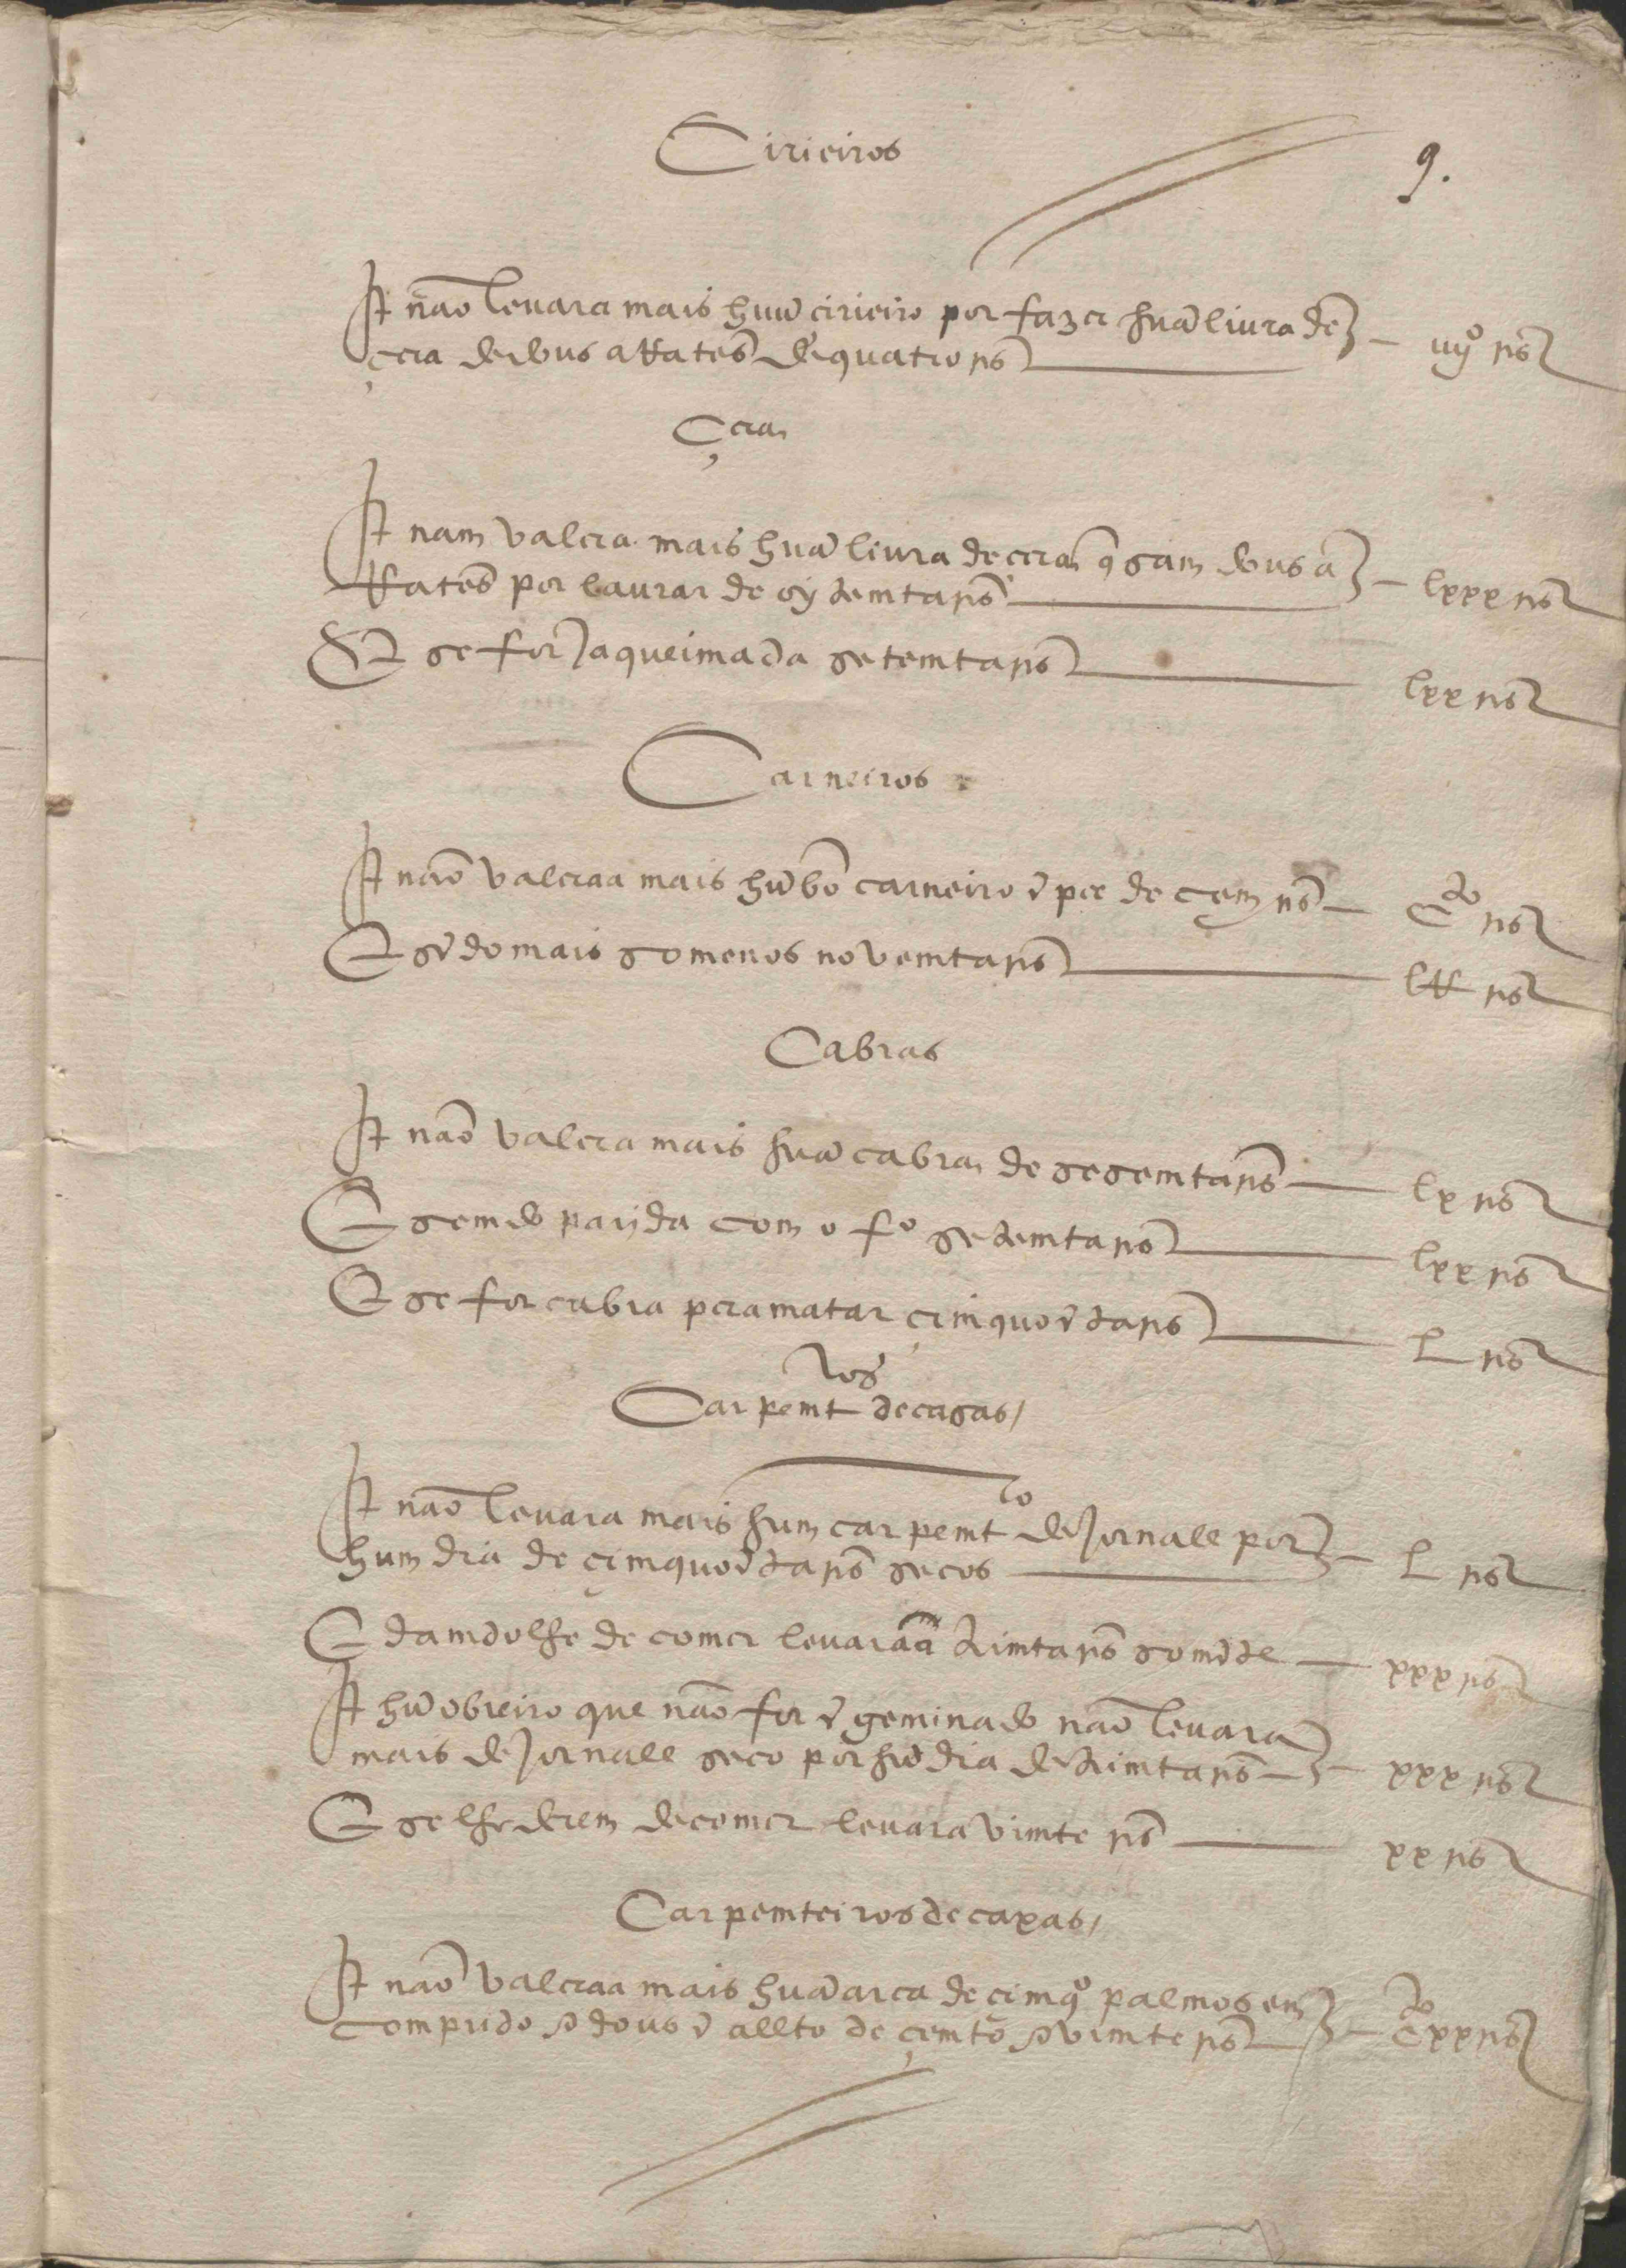 Cirieiros
9.
It não levara mais huũ cirieiro por fazer huã livra de
çera de dous aRates de quatro rs — iiijº rs
Çera
It nam valera mais huã livra de cera q sam dous a
Rates por lavrar de oytemta rs — lxxx rs
E se for Ja queimada setemta rs — lxx rs
Carneiros
It não valeraa mais hũ bõ carneiro ẽ pee de çem rs — Cto rs
E sẽdo mais somenos novemta rs — lR rs
Cabras
It não valera mais huã cabra de sesemta rs — lx rs
E semdo parida com o fº setemta rs — lxx rs
E se for cabra pera matar çimquoẽta rs — L rs
Carpemtros de casas /
It não levara mais hum carpemtro de Jornall por
hum dia de çimquoẽta rs secos — L rs
E damdolhe de comer levaraa trimta rs somẽte — xxx rs
It hũ obreiro que não for ẽxeminado não levara
mais de Jornall seco por hũ dia de trimta rs — xxx rs
E se lhe derem de comer levara vimte rs — xx rs
Carpemteiros de caxas /
It não valeraa mais huã arca de çimqº palmos em
comprido e dous ẽ allto de çemto e vimte rs — Cto xx rs